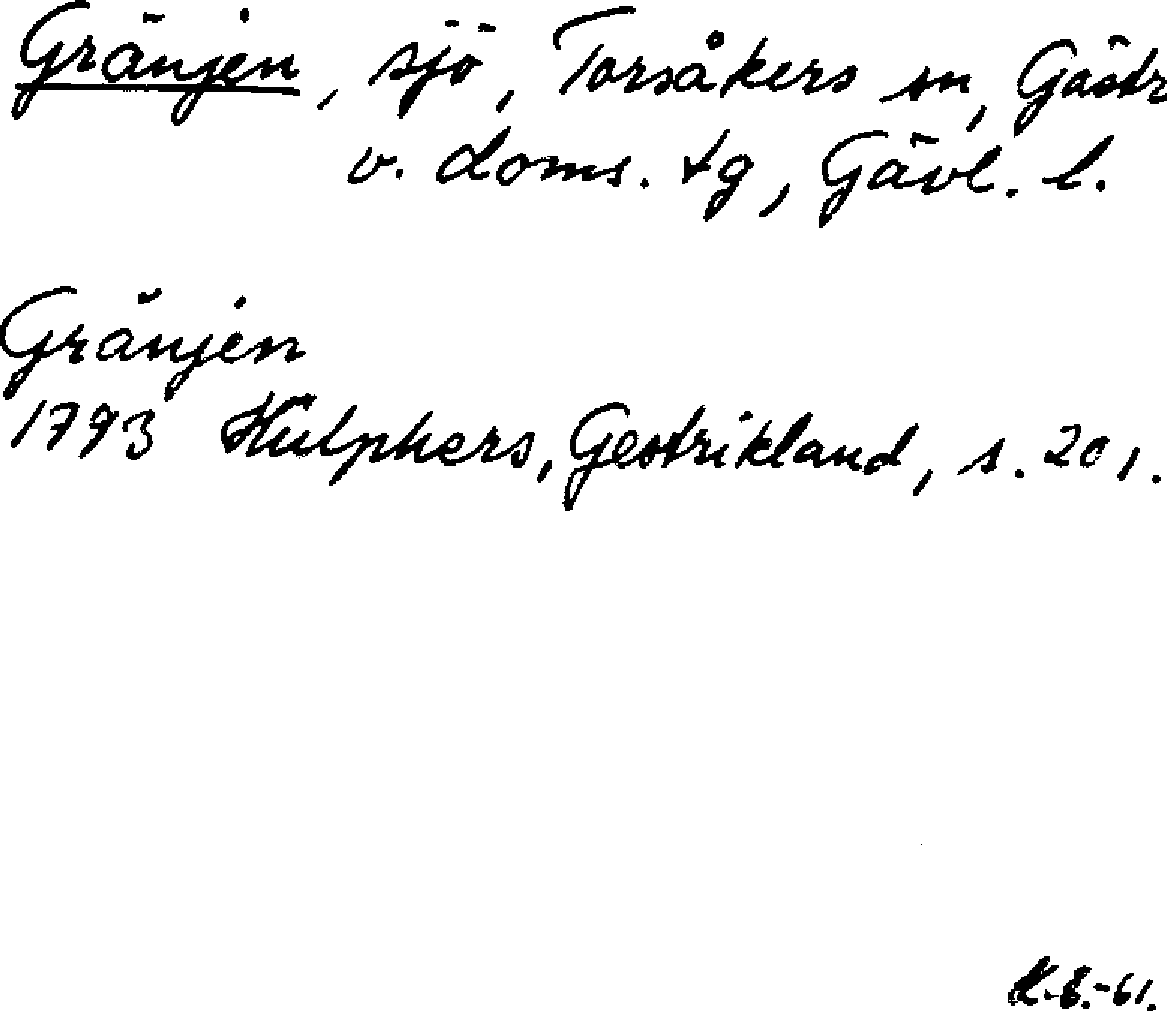 Gränjen, sjö, Torsåkers sn, Gästr
v. doms. tg, Gävl. l.
Gränjen
1793 Hülphers, Gestrikland, s. 201.
K.B.-61.